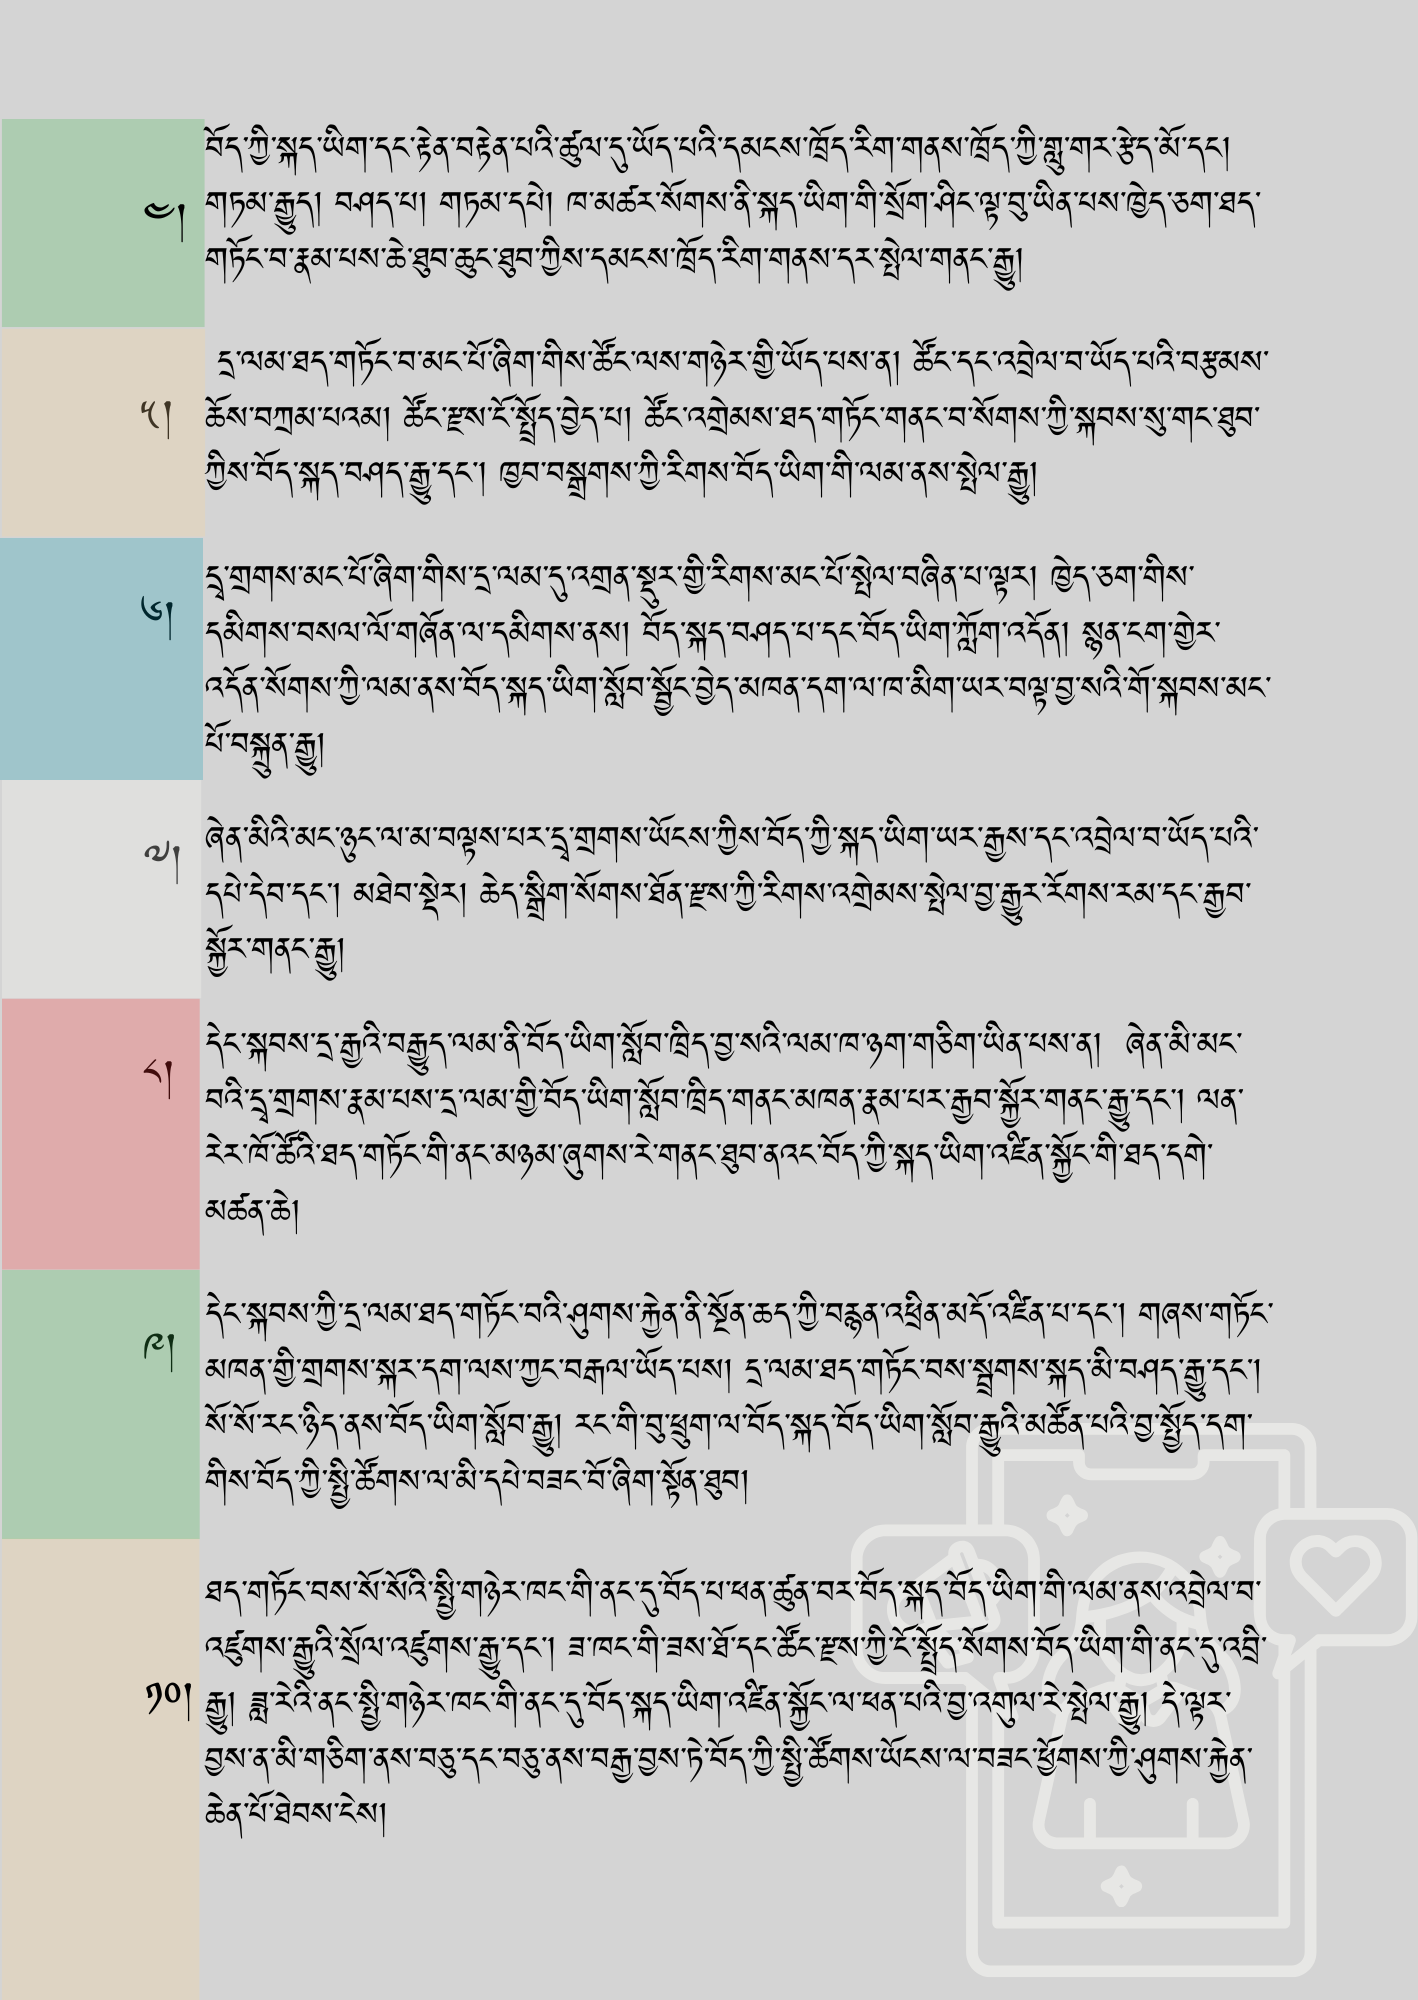 ༤། བོད་ཀྱི་སྐད་ཡིག་དང་རྟེན་བརྟེན་པའི་ཚུལ་དུ་ཡོད་པའི་དམངས་ཁྲོད་རིག་གནས་ཁྲོད་ཀྱི་གླུ་གར་རྩེད་མོ་དང༌།
གཏམ་རྒྱུད། བཤད་པ། གཏམ་དཔེ། ཁ་མཚར་སོགས་ནི་སྐད་ཡིག་གི་སྲོག་ཤིང་ལྟ་བུ་ཡིན་པས་ཁྱེད་ཅག་ཐད་
གཏོང་བ་རྣམ་པས་ཆེ་ཐུབ་ཆུང་ཐུབ་ཀྱིས་དམངས་ཁྲོད་རིག་གནས་དར་སྤེལ་གནང་རྒྱུ།
༥། དྲ་ལམ་ཐད་གཏོང་བ་མང་པོ་ཞིག་གིས་ཚོང་ལས་གཉེར་གྱི་ཡོད་པས་ན། ཚོང་དང་འབྲེལ་བ་ཡོད་པའི་བརྩམས་
ཆོས་བཀྲམ་པའམ། ཚོང་རྫས་ངོ་སྤྲོད་བྱེད་པ། ཚོང་འགྲེམས་ཐད་གཏོང་གནང་བ་སོགས་ཀྱི་སྐབས་སུ་གང་ཐུབ་
ཀྱིས་བོད་སྐད་བཤད་རྒྱུ་དང་། ཁྱབ་བསྒྲགས་ཀྱི་རིགས་བོད་ཡིག་གི་ལམ་ནས་སྤེལ་རྒྱུ།
༦། དྲྭ་གྲགས་མང་པོ་ཞིག་གིས་དྲ་ལམ་དུ་འགྲན་སྡུར་གྱི་རིགས་མང་པོ་སྤེལ་བཞིན་པ་ལྟར། ཁྱེད་ཅག་གིས་
དམིགས་བསལ་ལོ་གཞོན་ལ་དམིགས་ནས། བོད་སྐད་བཤད་པ་དང་བོད་ཡིག་ཀློག་འདོན། སྙན་ངག་གྱེར་
འདོན་སོགས་ཀྱི་ལམ་ནས་བོད་སྐད་ཡིག་སློབ་སྦྱོང་བྱེད་མཁན་དག་ལ་ཁ་མིག་ཡར་བལྟ་བྱ་སའི་གོ་སྐབས་མང་
པོ་བསྐྲུན་རྒྱུ།
༧། ཞེན་མིའི་མང་ཉུང་ལ་མ་བལྟས་པར་དྲྭ་གྲགས་ཡོངས་ཀྱིས་བོད་ཀྱི་སྐད་ཡིག་ཡར་རྒྱས་དང་འབྲེལ་བ་ཡོད་པའི་
དཔེ་དེབ་དང་། མཐེབ་སྡེར། ཆེད་སྒྲིག་སོགས་ཐོན་རྫས་ཀྱི་རིགས་འགྲེམས་སྤེལ་བྱ་རྒྱུར་རོགས་རམ་དང་རྒྱབ་
སྐྱོར་གནང་རྒྱུ།
༨། དེང་སྐབས་དྲ་རྒྱའི་བརྒྱུད་ལམ་ནི་བོད་ཡིག་སློབ་ཁྲིད་བྱ་སའི་ལམ་ཁ་ཉག་གཅིག་ཡིན་པས་ན། ཞེན་མི་མང་
བའི་དྲྭ་གྲགས་རྣམ་པས་དྲ་ལམ་གྱི་བོད་ཡིག་སློབ་ཁྲིད་གནང་མཁན་རྣམ་པར་རྒྱབ་སྐྱོར་གནང་རྒྱུ་དང་། ལན་
རེར་ཁོ་ཚོའི་ཐད་གཏོང་གི་ནང་མཉམ་ཞུགས་རེ་གནང་ཐུབ་ནའང་བོད་ཀྱི་སྐད་ཡིག་འཛིན་སྐྱོང་གི་ཐད་དགེ་
མཚན་ཆེ།
༩། དེང་སྐབས་ཀྱི་དྲ་ལམ་ཐད་གཏོང་བའི་ཤུགས་རྐྱེན་ནི་སྔོན་ཆད་ཀྱི་བརྙན་འཕྲིན་མདོ་འཛིན་པ་དང་། གཞས་གཏོང་
མཁན་གྱི་གྲགས་སྐར་དག་ལས་ཀྱང་བརྒལ་ཡོད་པས། དྲ་ལམ་ཐད་གཏོང་བས་སྦྲགས་སྐད་མི་བཤད་རྒྱུ་དང་།
སོ་སོ་རང་ཉིད་ནས་བོད་ཡིག་སློབ་རྒྱུ། རང་གི་བུ་ཕྲུག་ལ་བོད་སྐད་བོད་ཡིག་སློབ་རྒྱུའི་མཚོན་པའི་བྱ་སྤྱོད་དག་
གིས་བོད་ཀྱི་སྤྱི་ཚོགས་ལ་མི་དཔེ་བཟང་བོ་ཞིག་སྟོན་ཐུབ།
༡༠། ཐད་གཏོང་བས་སོ་སོའི་སྤྱི་གཉེར་ཁང་གི་ནང་དུ་བོད་པ་ཕན་ཚུན་བར་བོད་སྐད་བོད་ཡིག་གི་ལམ་ནས་འབྲེལ་བ་
འཛུགས་རྒྱུའི་སྲོལ་འཛུགས་རྒྱུ་དང་། ཟ་ཁང་གི་ཟས་ཐོ་དང་ཚོང་རྫས་ཀྱི་ངོ་སྤྲོད་སོགས་བོད་ཡིག་གི་ནང་དུ་འབྲི་
རྒྱུ། ཟླ་རེའི་ནང་སྤྱི་གཉེར་ཁང་གི་ནང་དུ་བོད་སྐད་ཡིག་འཛིན་སྐྱོང་ལ་ཕན་པའི་བྱ་འགུལ་རེ་སྤེལ་རྒྱུ། དེ་ལྟར་
བྱས་ན་མི་གཅིག་ནས་བཅུ་དང་བཅུ་ནས་བརྒྱ་བྱས་ཏེ་བོད་ཀྱི་སྤྱི་ཚོགས་ཡོངས་ལ་བཟང་ཕྱོགས་ཀྱི་ཤུགས་རྐྱེན་
ཆེན་པོ་ཐེབས་ངེས།